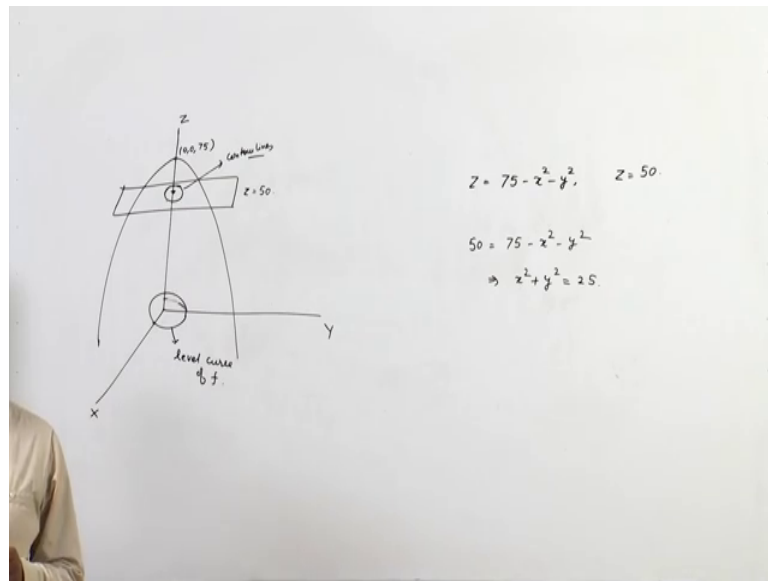 Z
(0,0,75)
contour lines
Z = 50.
Y
level curve
of f.
X
Z = 75 - x² - y², Z = 50.
50 = 75 - x² - y²
⇒ x² + y² = 25.